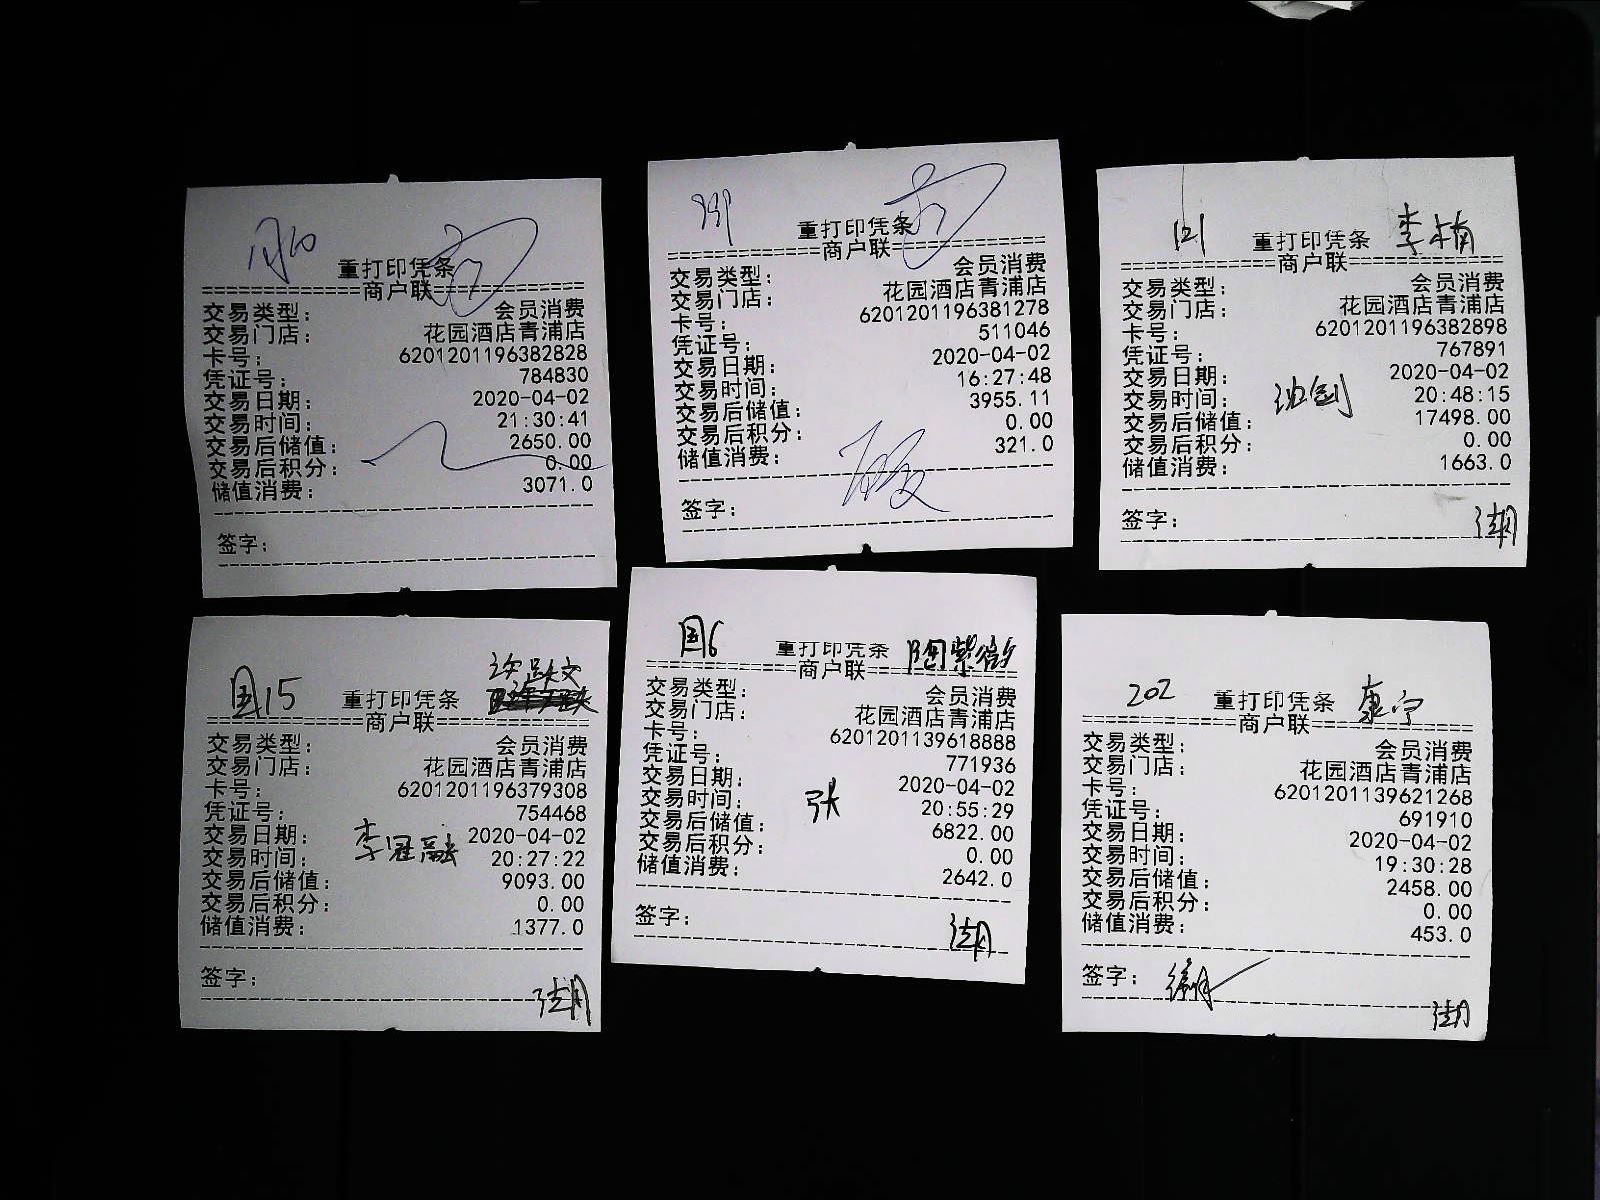 重打印凭条
============商户联============
交易类型: 会员消费
交易门店: 花园酒店青浦店
卡号: 6201201196382828
凭证号: 784830
交易日期: 2020-04-02
交易时间: 21:30:41
交易后储值: 2650.00
交易后积分: 0.00
储值消费: 3071.0
签字:
重打印凭条
============商户联============
交易类型: 会员消费
交易门店: 花园酒店青浦店
卡号: 6201201196381278
凭证号: 511046
交易日期: 2020-04-02
交易时间: 16:27:48
交易后储值: 3955.11
交易后积分: 0.00
储值消费: 321.0
签字:
121 重打印凭条 李楠
============商户联============
交易类型: 会员消费
交易门店: 花园酒店青浦店
卡号: 6201201196382898
凭证号: 767891
交易日期: 2020-04-02
交易时间: 20:48:15
交易后储值: 17498.00
交易后积分: 0.00
储值消费: 1663.0
签字:
国15 重打印凭条
============商户联============
交易类型: 会员消费
交易门店: 花园酒店青浦店
卡号: 6201201196379308
凭证号: 754468
交易日期: 2020-04-02
李冠融
交易时间: 20:27:22
交易后储值: 9093.00
交易后积分: 0.00
储值消费: 1377.0
签字:
国6 重打印凭条 陶紫微
============商户联============
交易类型: 会员消费
交易门店: 花园酒店青浦店
卡号: 6201201139618888
凭证号: 771936
交易日期: 2020-04-02
交易时间: 张 20:55:29
交易后储值: 6822.00
交易后积分: 0.00
储值消费: 2642.0
签字:
202 重打印凭条 康宁
============商户联============
交易类型: 会员消费
交易门店: 花园酒店青浦店
卡号: 6201201139621268
凭证号: 691910
交易日期: 2020-04-02
交易时间: 19:30:28
交易后储值: 2458.00
交易后积分: 0.00
储值消费: 453.0
签字: